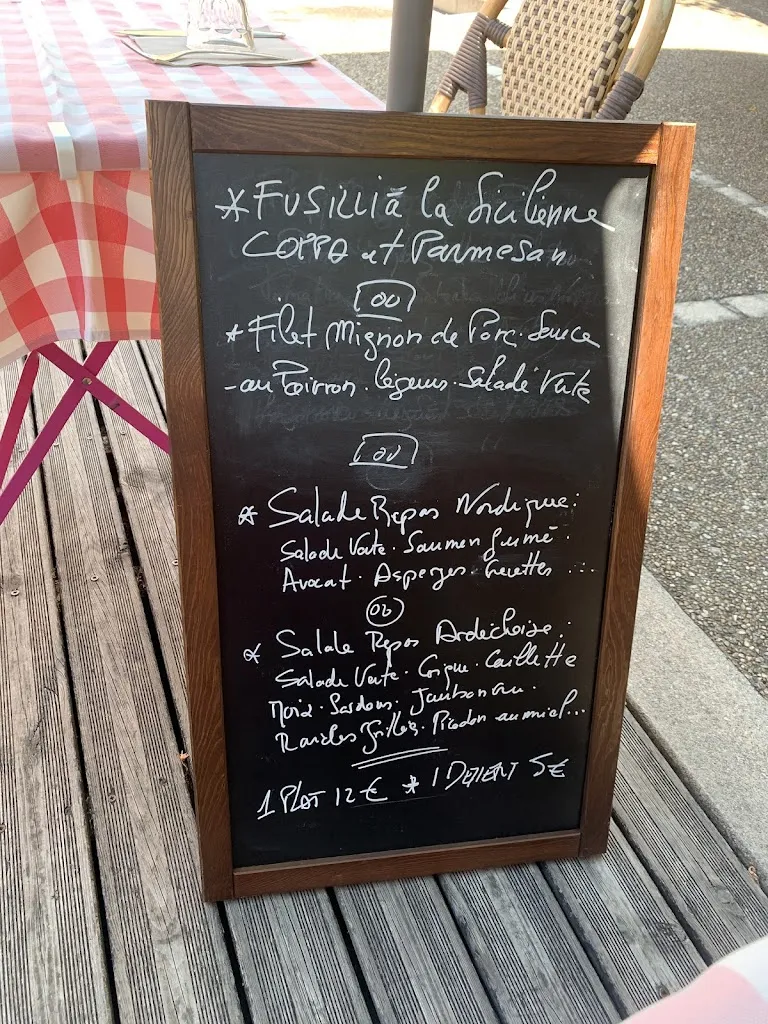 * FUSILLI à la Sicilienne
COPPA et Parmesan
OU
* Filet Mignon de Porc. Sauce
- au Poivron. légumes. Salade Verte
OU
* Salade Repas Nordique:
Salade Verte. Saumon fumé.
Avocat. Asperges. Crevettes ...
OU
* Salade Repas Ardéchoise:
Salade Verte. Crique. Caillette
Noix. Jambonneau.
Ravioles Grillées. Picodon au miel...
1 PLAT 12€ * 1 DESSERT 5€